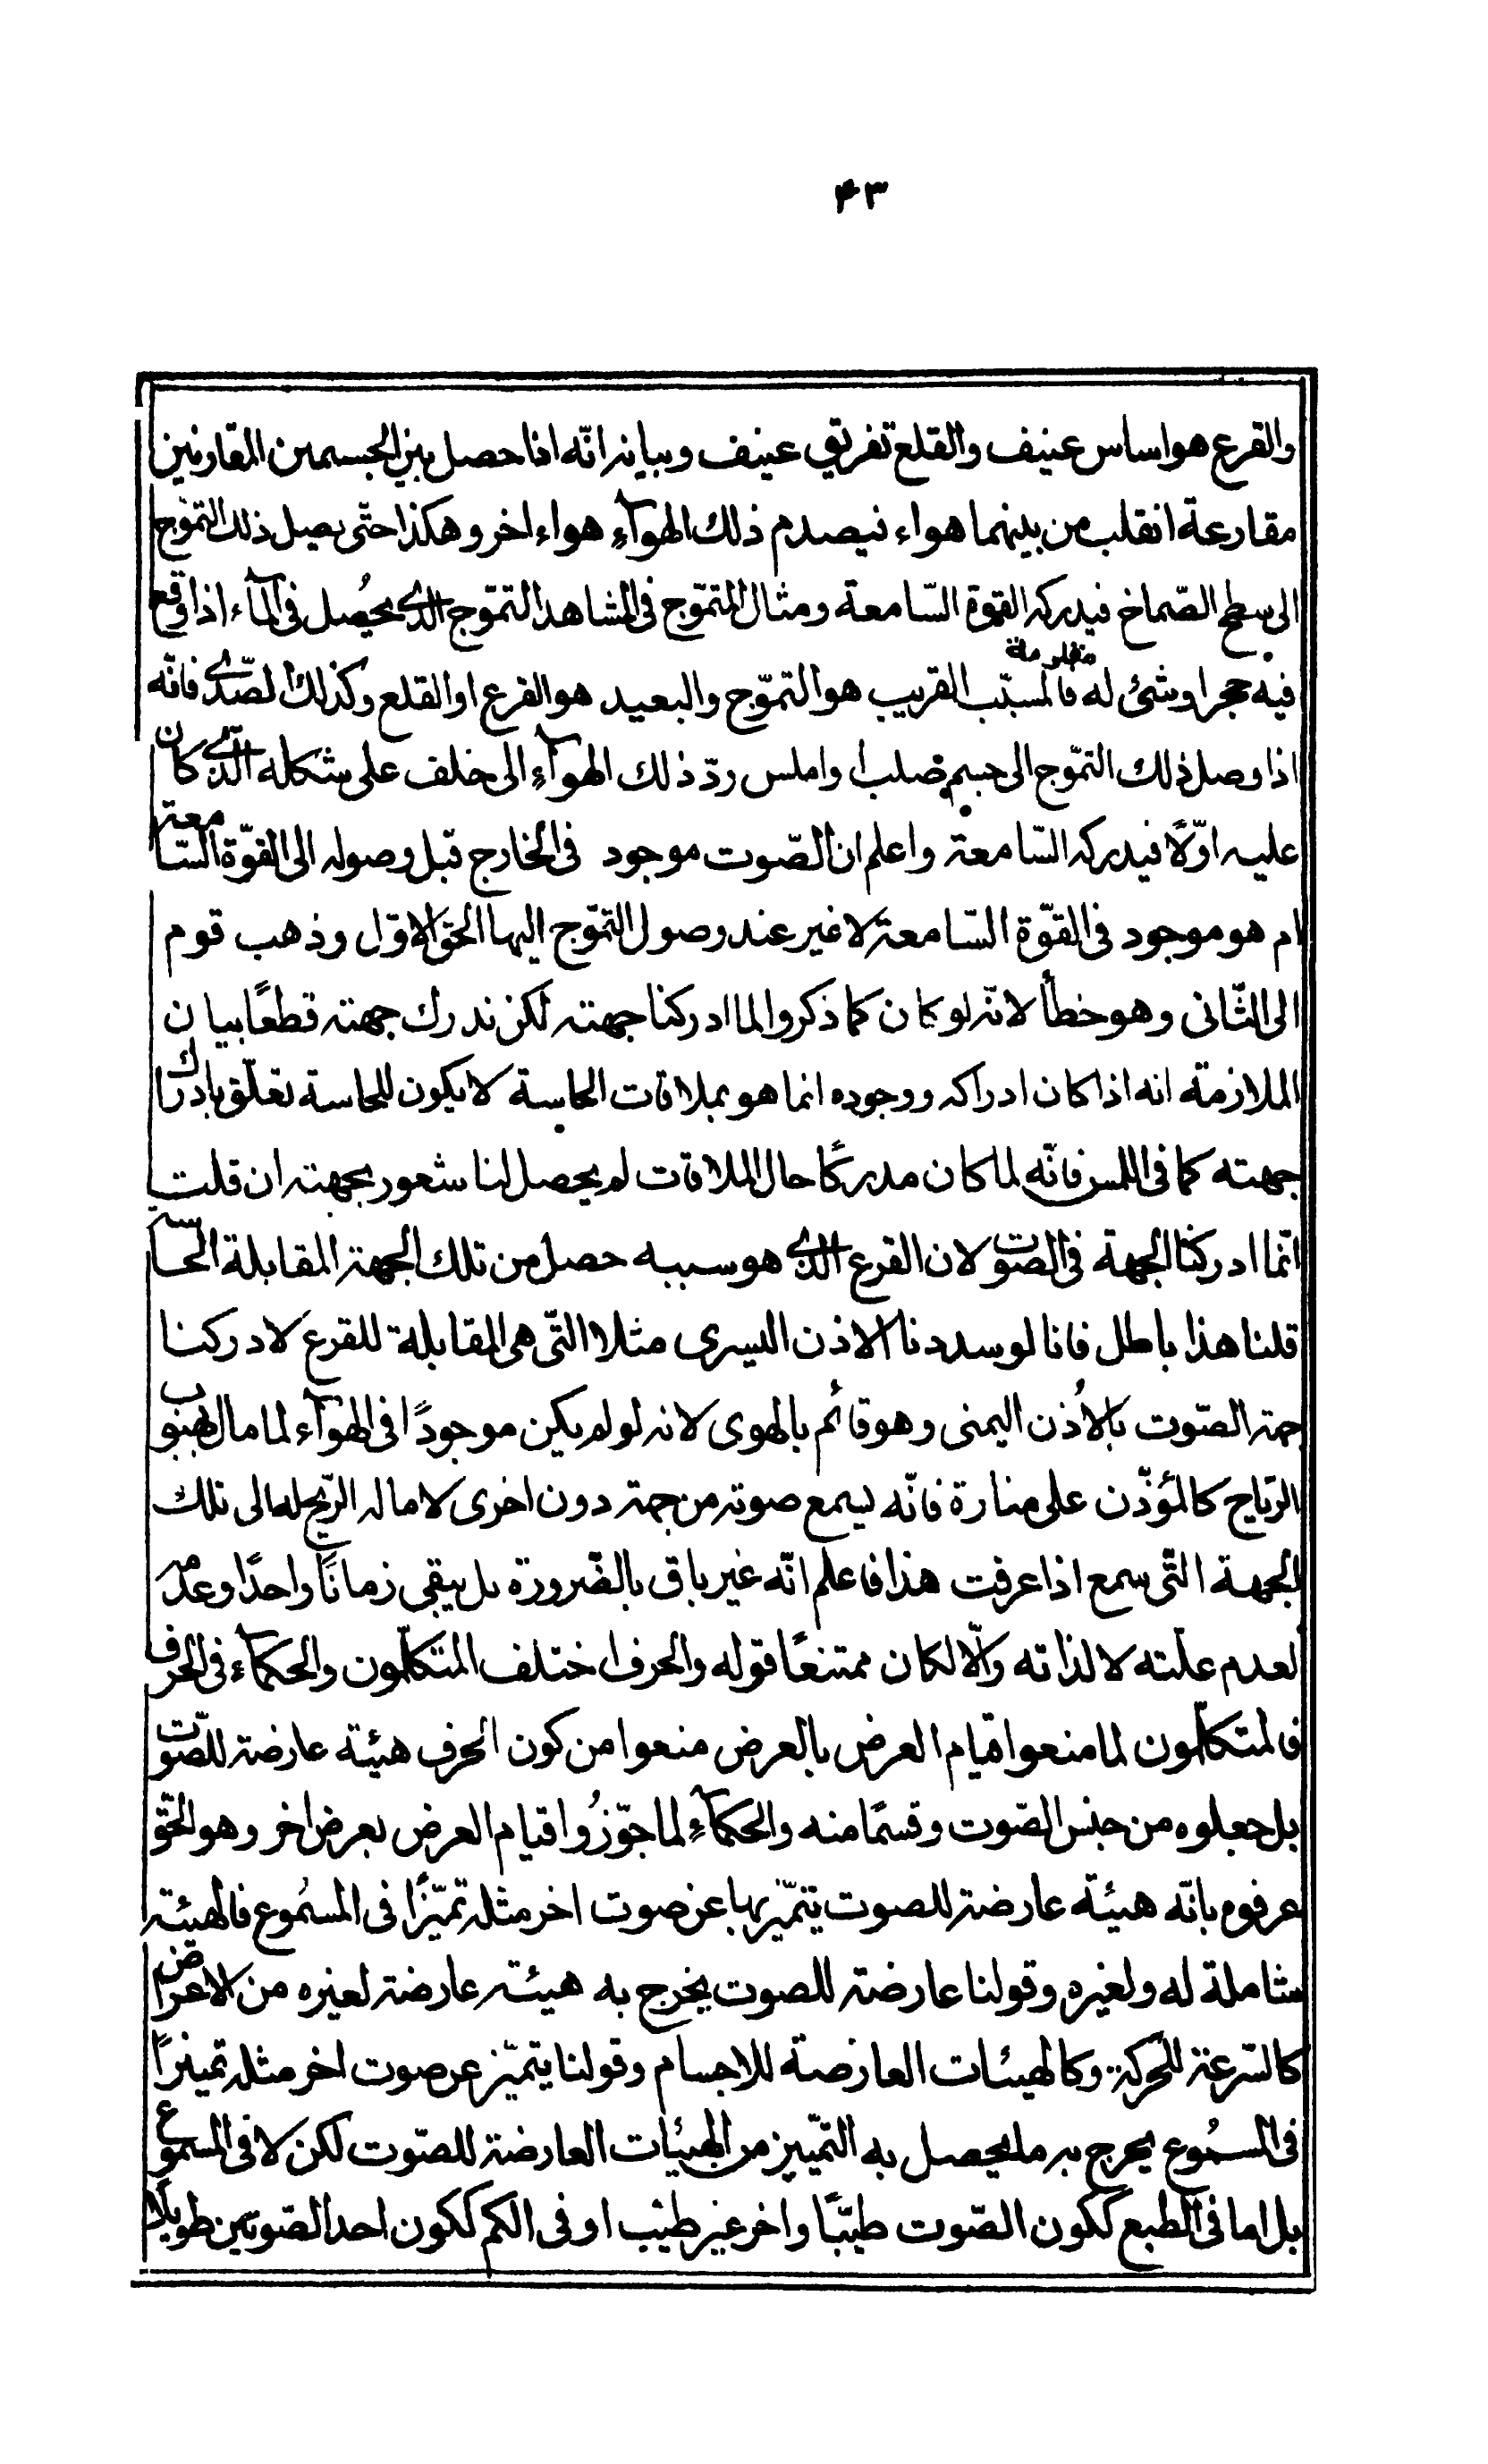 ۴۳
والقرع هو اساس عنيف والقلع تفريق عنيف وبيانه انّه اذا حصل بين الجسمين المتقاومين
مقارعة انقلب من بينهما هواء فيصدم ذلك الهوآء هواء اخر وهكذا حتّى يصل ذلك التموّج
الى سطح الصّماخ فيدركه القوة السّامعة ومثال المتموّج فى المشاهد التموّج الذى يحصُل فى المآء اذا وقع
فيه حجر او شئ له مقاومة فالمسبّب القريب هو التموّج والبعيد هو القرع او القلع وكذلك الصّدى فانّه
اذا وصل ذلك التموّج الى جسم صلب او املس ردّ ذلك الهوآء الى خلف على شكله الّذى كان
عليه اوّلًا فيدركه السّامعة واعلم ان الصّوت موجود فى الخارج قبل وصوله الى القوّة السّامعة
ام هو موجود فى القوّة السّامعة لا غير عند وصول التموّج اليها الحق الاوّل وذهب قوم
الى الثّانى وهو خطأ لانّه لو كان كما ذكروا لما ادركنا جهته لكن ندرك جهته قطعًا بيان
الملازمة انه اذا كان ادراكه ووجوده انما هو بملاقات الحاسة لا يكون للحاسة تعلّق بادراك
جهته كما فى اللمس فانّه لما كان مدركًا حال الملاقات لم يحصل لنا شعور بجهته ان قلت
انّما ادركنا الجهة فى الصّوت لان القرع الذى هو سببه حصل من تلك الجهة المقابلة الحاسة
قلنا هذا باطل فانا لو سددنا الاذن اليسرى مثلا التّى هى المقابلة للقرع لادركنا
جهة الصّوت بالاُذن اليمنى وهو قائم بالهوى لانه لو لم يكن موجودًا فى الهوآء لما مال لهبوب
الرّياح كالمؤذّن على منارة فانّه ليسمع صوته من جهة دون اخرى لامالة الرّيح له الى تلك
الجهة التّى سمع اذا عرفت هذا فاعلم انّه غير باق بالضّرورة بل يبقى زمانًا واحدًا وعدمه
لعدم علّته لا لذاته والّا لكان ممتنعًا قوله والحرف اختلف المتكلّمون والحكمآء فى الحرف
فالمتكلّمون لما منعوا قيام العرض بالعرض منعوا من كون الحرف هيئة عارضة للصّوت
بل جعلوه من جنس الصّوت وقسمًا منه والحكمآء لما جوّزُوا قيام العرض بعرض اخر وهو الحقّ
عرفوه بانّه هيئة عارضة للصوت يتميّز بها عن صوت اخر مثله تميّزًا فى المسمُوع فالهيئة
شاملة له ولغيره وقولنا عارضة للصوت يخرج به هيئة عارضة لغيره من الاعراض
كالسّرعة للحركة وكالهيئات العارضة للاجسام وقولنا يتميّز عن صوت اخر مثله تميزًا
فى المسمُوع يخرج به ما يحصل به التّمييز من الهيئات العارضة للصّوت لكن لا فى المسموع
بل اما فى الطبع ككون الصّوت طيّبًا واخر غير طيّب او فى الكم ككون احد الصّوتين طويلًا